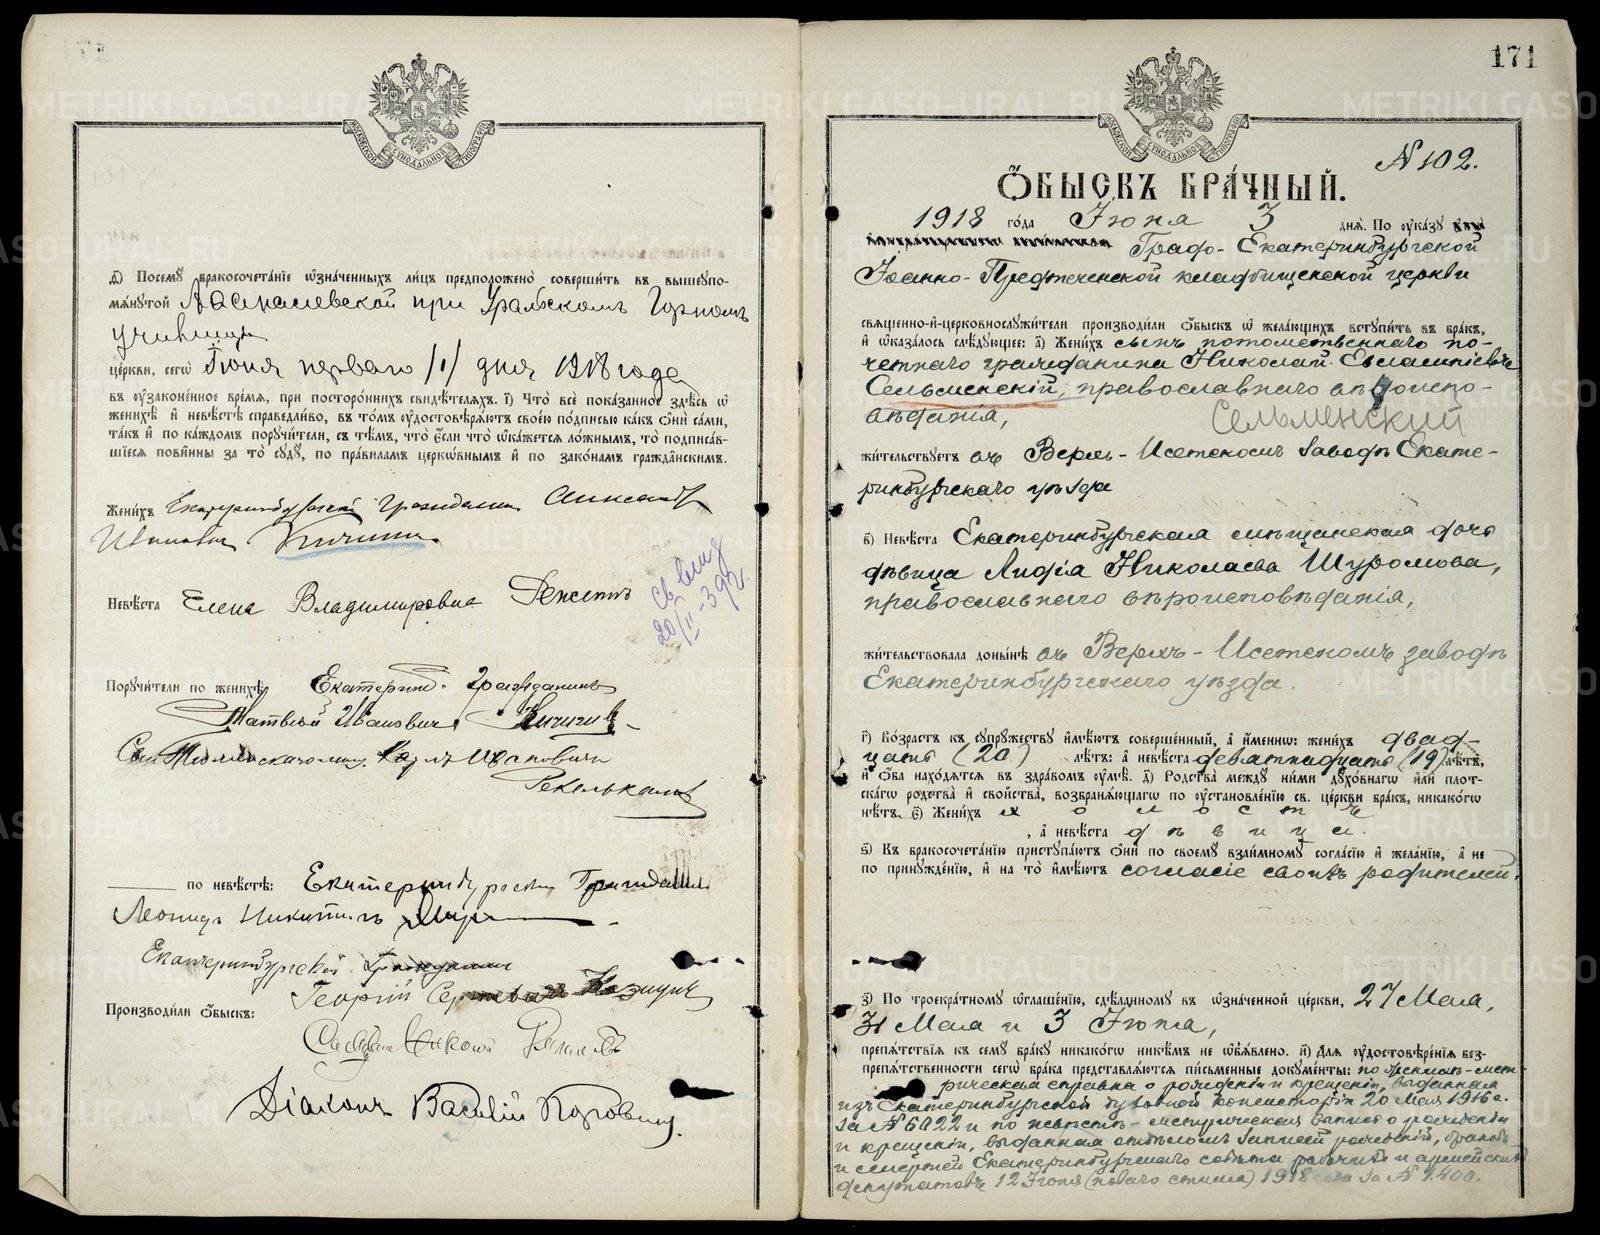 д҃) Посемꙋ бракосочета́нїе ѡ҆зна́ченныхъ ли́цъ предположено̀ соверши́ть въ вышеꙋпо-
мѧ́нꙋтой Афанасіевской при Уральскомъ Горномъ
училищѣ
це́ркви, сегѡ̀ Іюня перваго /1/ дня 1918 года
въ ᲂу҆зако́ненное вре́мѧ, при посторо́ннихъ свидѣ́телѧхъ. і҃) Что̀ всѐ пока́занное здѣ́сь ѡ҆
женихѣ̀ и҆ невѣ́стѣ справедли́во, въ то́мъ ᲂу҆достовѣрѧ́ютъ свое́ю по́дписью ка́къ ѻ҆нѝ са́ми,
та́къ и҆ по ка́ждомъ порꙋчи́тели, съ тѣ́мъ, что̀ є҆́сли что̀ ѡ҆ка́жетсѧ ло́жнымъ, то̀ подписа́в-
шїесѧ пови́нны за то̀ сꙋдꙋ̀, по пра́виламъ церкѡ́внымъ и҆ по зако́намъ гражда́нскимъ.
Жени́хъ Екатеринбургскій гражданинъ Александръ
Ивановичъ Кичигинъ
Невѣ́ста Елена Владимировна
Св выд
20/II-39г.
Порꙋчи́тели по женихѣ̀ Екатеринб. Гражданинъ
Матвей Ивановичъ Кичигинъ
Карлъ Ивановичъ
по невѣ́стѣ: Екатеринбургскій Гражданинъ
Леонидъ Никитичъ
Екатеринбургскій Гражданинъ
Георгій Сергѣевичъ
Производи́ли ѻ҆́быскъ:
Діаконъ Василій
171
МОСКОВСКОЙ СѴНОДАЛЬНОЙ ТИПОГРАФІИ
МОСКОВСКОЙ СѴНОДАЛЬНОЙ ТИПОГРАФІИ
N 102.
Ѻ҆́БЫСКЪ БРА́ЧНЫЙ.
1918 го́да Іюня 3 днѧ̀. По ᲂу҆ка́зꙋ
Граф- Екатеринбургской
Іоанно-Предтеченской кладбищенской церкви
свѧще́нно-и҆-церковнослꙋжи́тели производи́ли ѻ҆́быскъ ѡ҆ жела́ющихъ встꙋпи́ть въ бра́къ,
и҆ ѡ҆каза́лось слѣ́дꙋющее: а҃) Жени́хъ сынъ потомственнаго по-
четнаго гражданина Николай Евлампіевъ
Сельменскій, православнаго вѣроиспо-
вѣданія,
Сельменский
жи́тельствꙋетъ въ Верхъ-Исетскомъ заводѣ Екате-
ринбургскаго уѣзда
в҃) Невѣ́ста Екатеринбургская мѣщанская дочь
дѣвица Лидія Николаева Шуромова,
православнаго вѣроисповѣданія,
жи́тельствовала доны́нѣ въ Верхъ-Исетскомъ заводѣ
Екатеринбургскаго уѣзда.
г҃) Во́зрастъ къ сꙋпрꙋ́жествꙋ и҆мѣ́ютъ соверше́нный, а҆ и҆́менно: жени́хъ двад-
цать (20) лѣ́тъ: а҆ невѣ́ста девятнадцать (19) лѣ́тъ,
и҆ ѻ҆́ба нахо́дѧтсѧ въ здра́вомъ ᲂу҆мѣ̀. д҃) Родства̀ междꙋ̀ ни́ми дꙋхо́внагѡ и҆лѝ пло́т-
ска́гѡ родства̀ и҆ сво́йства, возбранѧ́ющагѡ по ᲂу҆становле́нїю св. це́ркви бра́къ, никако́гѡ
нѣ́тъ. є҃) Жени́хъ холостъ
, а҆ невѣ́ста дѣвица.
ѕ҃) Къ бракосочета́нїю пристꙋпа́ютъ ѻ҆нѝ по своемꙋ̀ взаи́мномꙋ согла́сїю и҆ жела́нїю, а҆ не
по принꙋжде́нїю, и҆ на то̀ и҆мѣ́ютъ согласіе своихъ родителей.
з҃) По троекра́тномꙋ ѡ҆глаше́нїю, сдѣ́ланномꙋ въ ѡ҆зна́ченной це́ркви, 27 Мая,
31 Мая и 3 Іюня,
препѧ́тствїѧ къ семꙋ̀ бра́кꙋ никако́гѡ никѣ́мъ не ѡ҆б̾ѧ́влено. и҃) Для ᲂу҆достовѣре́нїѧ без-
препѧ́тственности сегѡ̀ бра́ка представлѧ́ютсѧ пи́сьменные докꙋме́нты: по женихѣ-мет-
рическая справка о рожденіи и крещеніи, выданная
изъ Екатеринбургской духовной консисторіи 20 Мая 1916 г.
за N 6022 и по невѣстѣ - метрическая выпись о рожденіи
и крещеніи, выданная отдѣломъ записей рожденій, браковъ
и смертей Екатеринбургскаго совѣта рабочихъ и армейскихъ
депутатовъ 12 Іюня (новаго стиля) 1918 года за N 1400.
METRIKI.GASO-URAL.RU